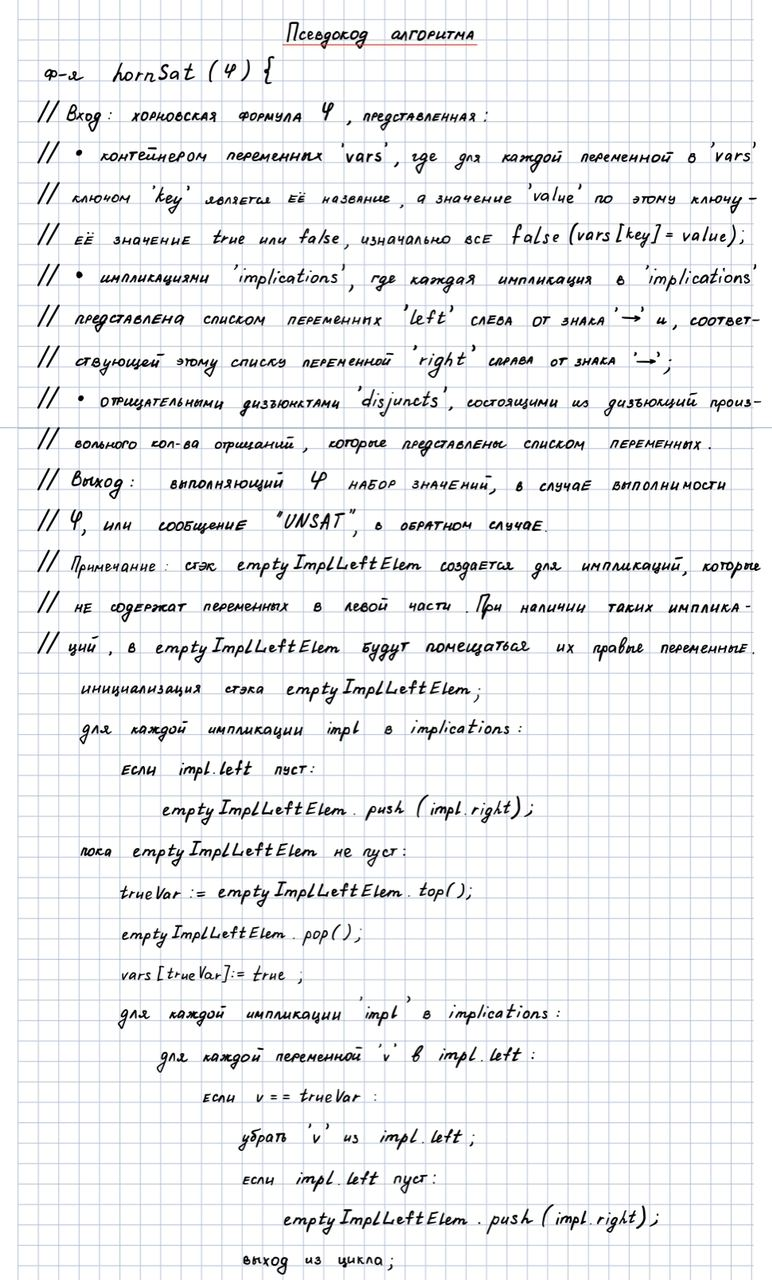 Псевдокод алгоритма
ф-я hornSat (φ) {
// Вход: хорновская формула φ, представленная:
// • контейнером переменных 'vars', где для каждой переменной в 'vars'
// ключом 'key' является её название, а значение 'value' по этому ключу -
// её значение true или false, изначально все false (vars[key] = value);
// • импликациями 'implications', где каждая импликация в 'implications'
// представлена списком переменных 'left' слева от знака '→' и, соответ-
// ствующей этому списку переменной 'right' справа от знака '→';
// • отрицательными дизъюнктами 'disjuncts', состоящими из дизъюкций произ-
// вольного кол-ва отрицаний, которые представлены списком переменных.
// Выход: выполняющий φ набор значений, в случае выполнимости
// φ, или сообщение "UNSAT", в обратном случае.
// Примечание: стэк emptyImplLeftElem создается для импликаций, которые
// не содержат переменных в левой части. При наличии таких имплика-
// ций, в emptyImplLeftElem будут помещаться их правые переменные.
инициализация стэка emptyImplLeftElem;
для каждой импликации impl в implications:
если impl.left пуст:
emptyImplLeftElem.push (impl.right);
пока emptyImplLeftElem не пуст:
trueVar := emptyImplLeftElem.top();
emptyImplLeftElem.pop();
vars[trueVar]:= true ;
для каждой импликации 'impl' в implications:
для каждой переменной 'v' в impl.left:
если v == trueVar :
убрать 'v' из impl.left;
если impl.left пуст:
emptyImplLeftElem.push (impl.right);
выход из цикла;